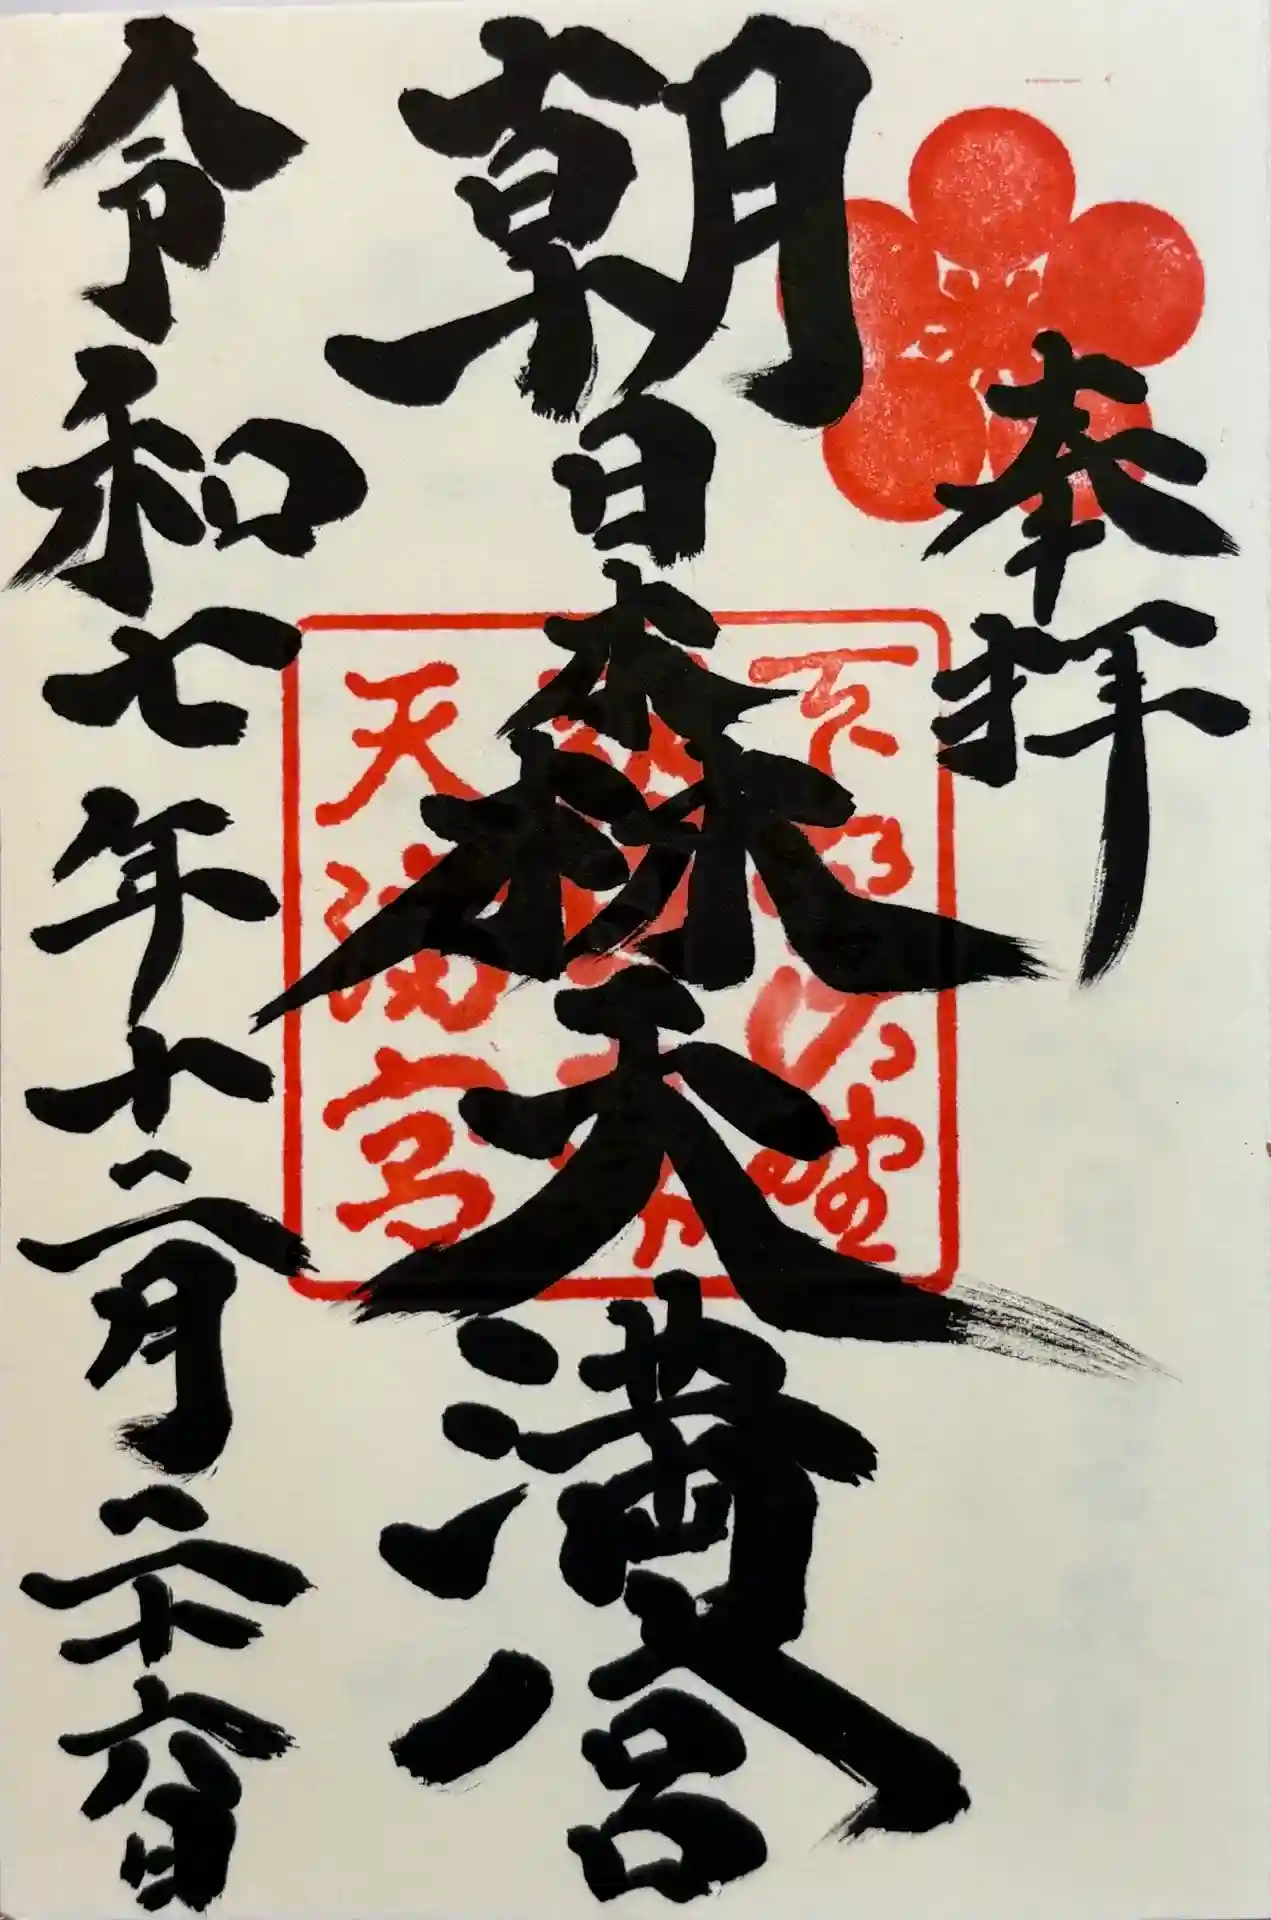 奉拝
朝日森天満宮
令和七年十二月二十六日
天満宮